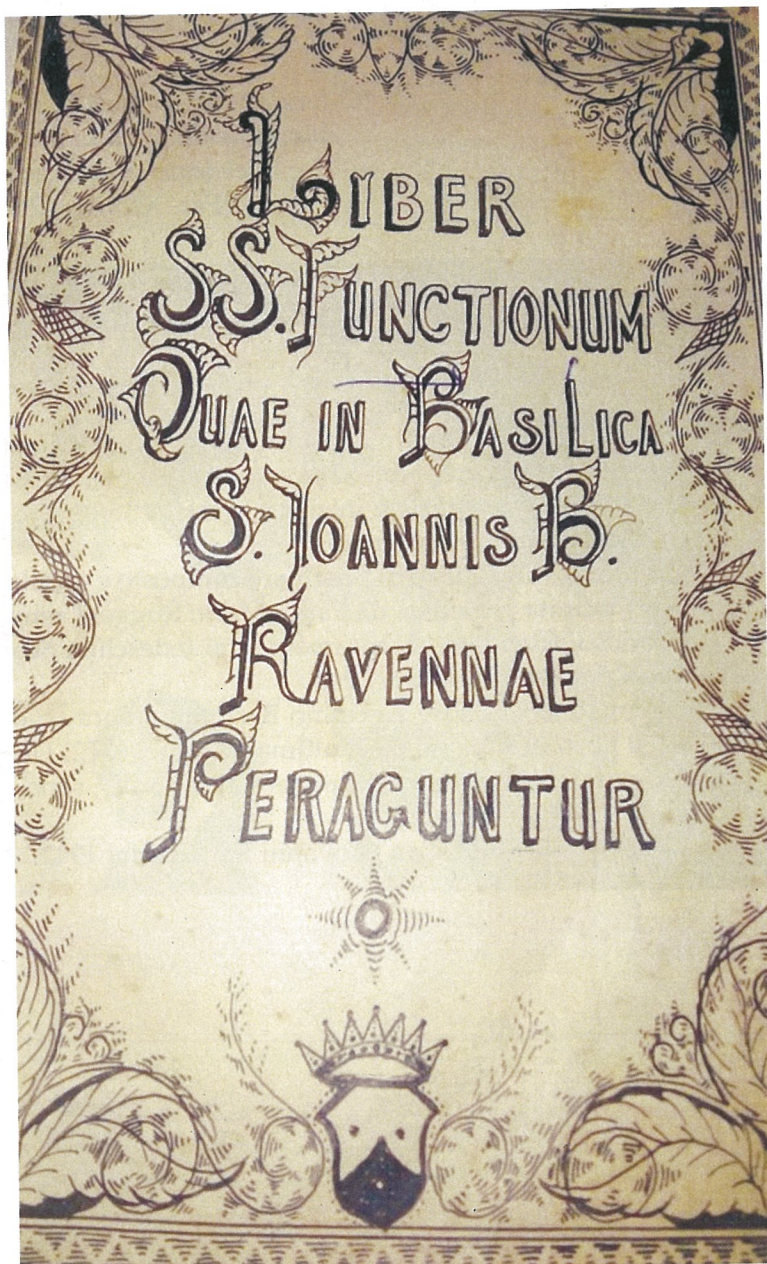 LIBER
SS. FUNCTIONUM
QUAE IN BASILICA
S. IOANNIS B.
RAVENNAE
PERAGUNTUR